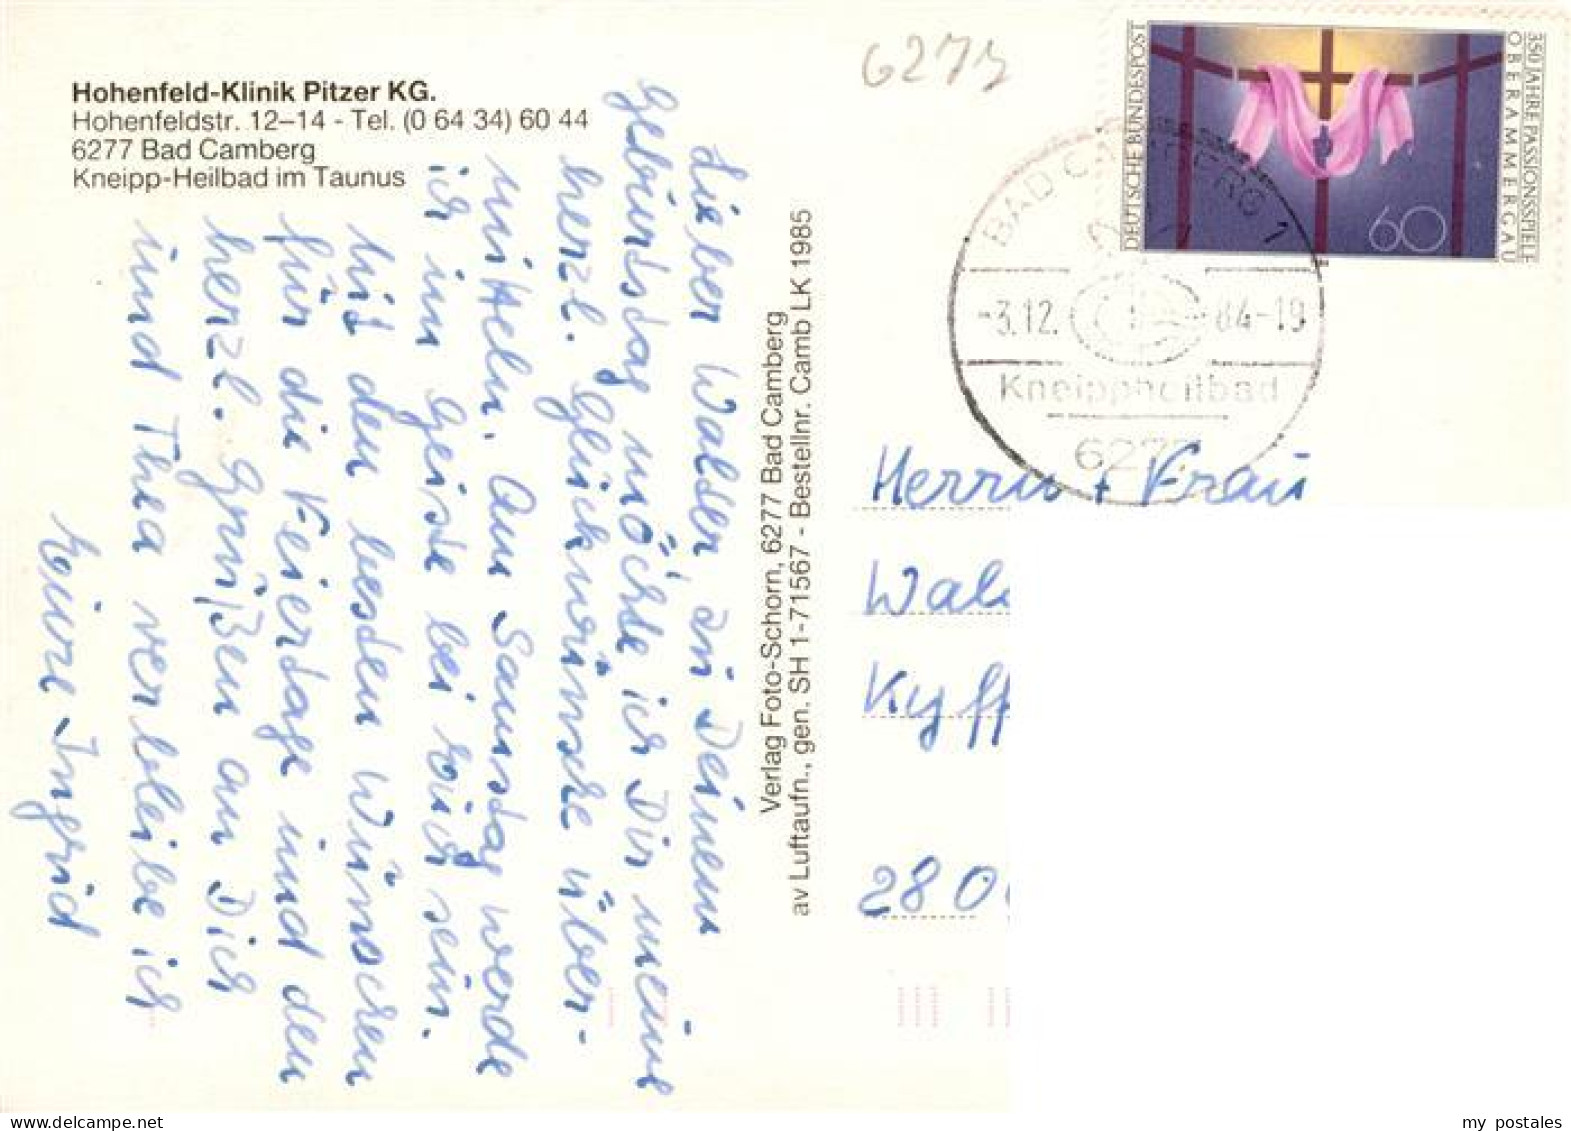 Hohenfeld-Klinik Pitzer KG.
Hohenfeldstr. 12–14 - Tel. (0 64 34) 60 44
6277 Bad Camberg
Kneipp-Heilbad im Taunus
Lieber Walter, in Deinem
Geburtstag möchte ich Dir meine
herzl. Glückwünsche über-
mitteln. Am Samstag werde
ich im Geiste bei euch sein.
Mit den besten Wünschen
für die Feiertage und den
herzl. Grüßen an Dich
und Thea verbleibe ich
Eure Ingrid
Verlag Foto-Schorn, 6277 Bad Camberg
av Luftaufn., gen. SH 1-71567 - Bestellnr. Camb LK 1985
6275
DEUTSCHE BUNDESPOST
350 JAHRE PASSIONSSPIELE
OBERAMMERGAU
60
BAD CAMBERG 1
-3.12. 84-19
Kneippheilbad
6277
Herrn + Frau
Wal
Kyff
280
my postales